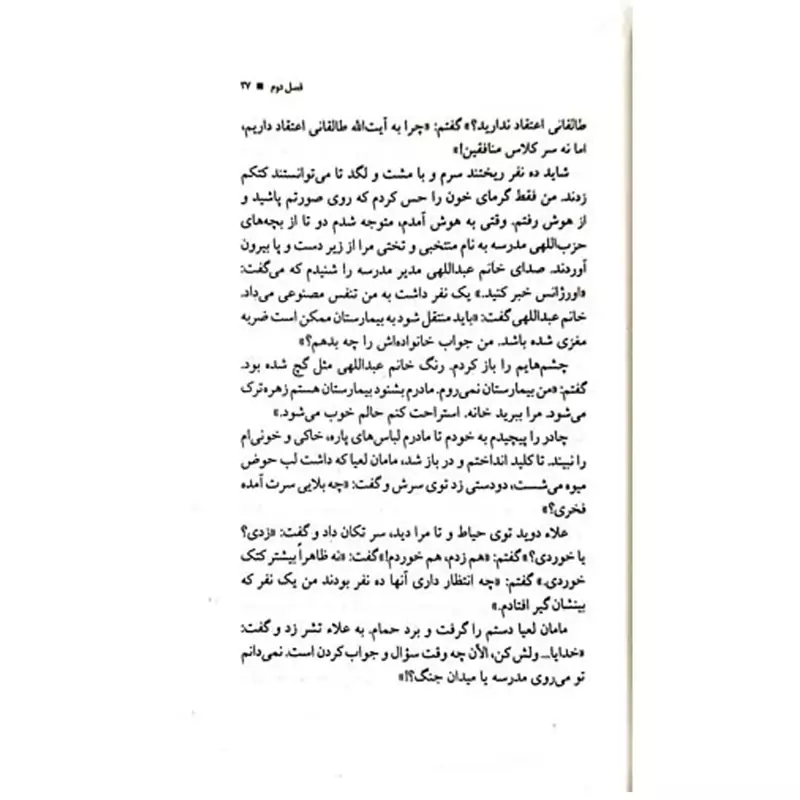 فصل دوم ■ ۳۷
طالقانی اعتقاد ندارید؟» گفتم: «چرا به آیت‌الله طالقانی اعتقاد داریم،
اما نه سر کلاس منافقین!»
شاید ده نفر ریختند سرم و با مشت و لگد تا می‌توانستند کتکم
زدند. من فقط گرمای خون را حس کردم که روی صورتم پاشید و
از هوش رفتم. وقتی به هوش آمدم، متوجه شدم دو تا از بچه‌های
حزب‌اللهی مدرسه به نام منتخبی و تختی مرا از زیر دست و پا بیرون
آوردند. صدای خانم عبداللهی مدیر مدرسه را شنیدم که می‌گفت:
«اورژانس خبر کنید.» یک نفر داشت به من تنفس مصنوعی می‌داد.
خانم عبداللهی گفت: «باید منتقل شود به بیمارستان ممکن است ضربه
مغزی شده باشد. من جواب خانواده‌اش را چه بدهم؟»
چشم‌هایم را باز کردم. رنگ خانم عبداللهی مثل گچ شده بود.
گفتم: «من بیمارستان نمی‌روم. مادرم بشنود بیمارستان هستم زهره‌ترک
می‌شود. مرا ببرید خانه. استراحت کنم حالم خوب می‌شود.»
چادر را پیچیدم به خودم تا مادرم لباس‌های پاره، خاکی و خونی‌ام
را نبیند. تا کلید انداختم و در باز شد، مامان لعیا که داشت لب حوض
میوه می‌شست، دودستی زد توی سرش و گفت: «چه بلایی سرت آمده
فخری؟»
علاء دوید توی حیاط و تا مرا دید، سر تکان داد و گفت: «زدی؟
یا خوردی؟» گفتم: «هم زدم، هم خوردم!» گفت: «نه ظاهراً بیشتر کتک
خوردی.» گفتم: «چه انتظار داری آنها ده نفر بودند من یک نفر که
بینشان گیر افتادم.»
مامان لعیا دستم را گرفت و برد حمام. به علاء تشر زد و گفت:
«خدایا... ولش کن، الأن چه وقت سؤال و جواب کردن است. نمی‌دانم
تو می‌روی مدرسه یا میدان جنگ؟!»